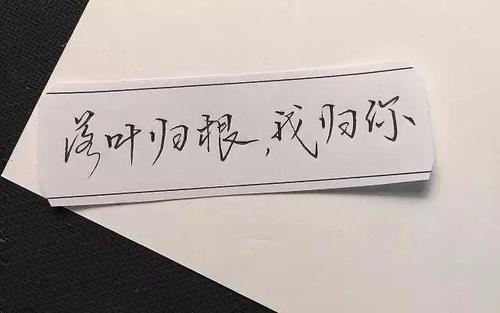 落叶归根,我归你